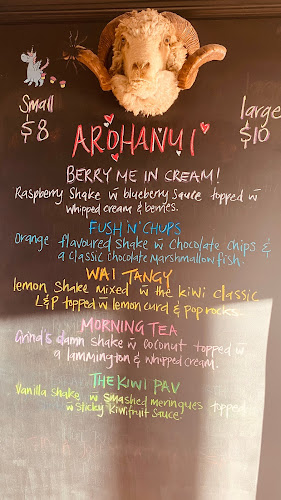 Small
$8
large
$10
AROHANUI
BERRY ME IN CREAM!
Raspberry Shake w̄ blueberry sauce topped w̄
whipped cream & berries.
FUSH N' CHUPS
Orange flavoured shake w̄ chocolate chips &
a classic chocolate marshmallow fish.
WAI TANGY
lemon shake mixed w̄ the kiwi classic
L&P topped w̄ lemon curd & pop rocks.
MORNING TEA
Grind's damn shake w̄ coconut topped w̄
a lammington & whipped cream.
THE KIWI PAV
Vanilla shake w̄ smashed meringues topped
w̄ sticky kiwifruit sauce